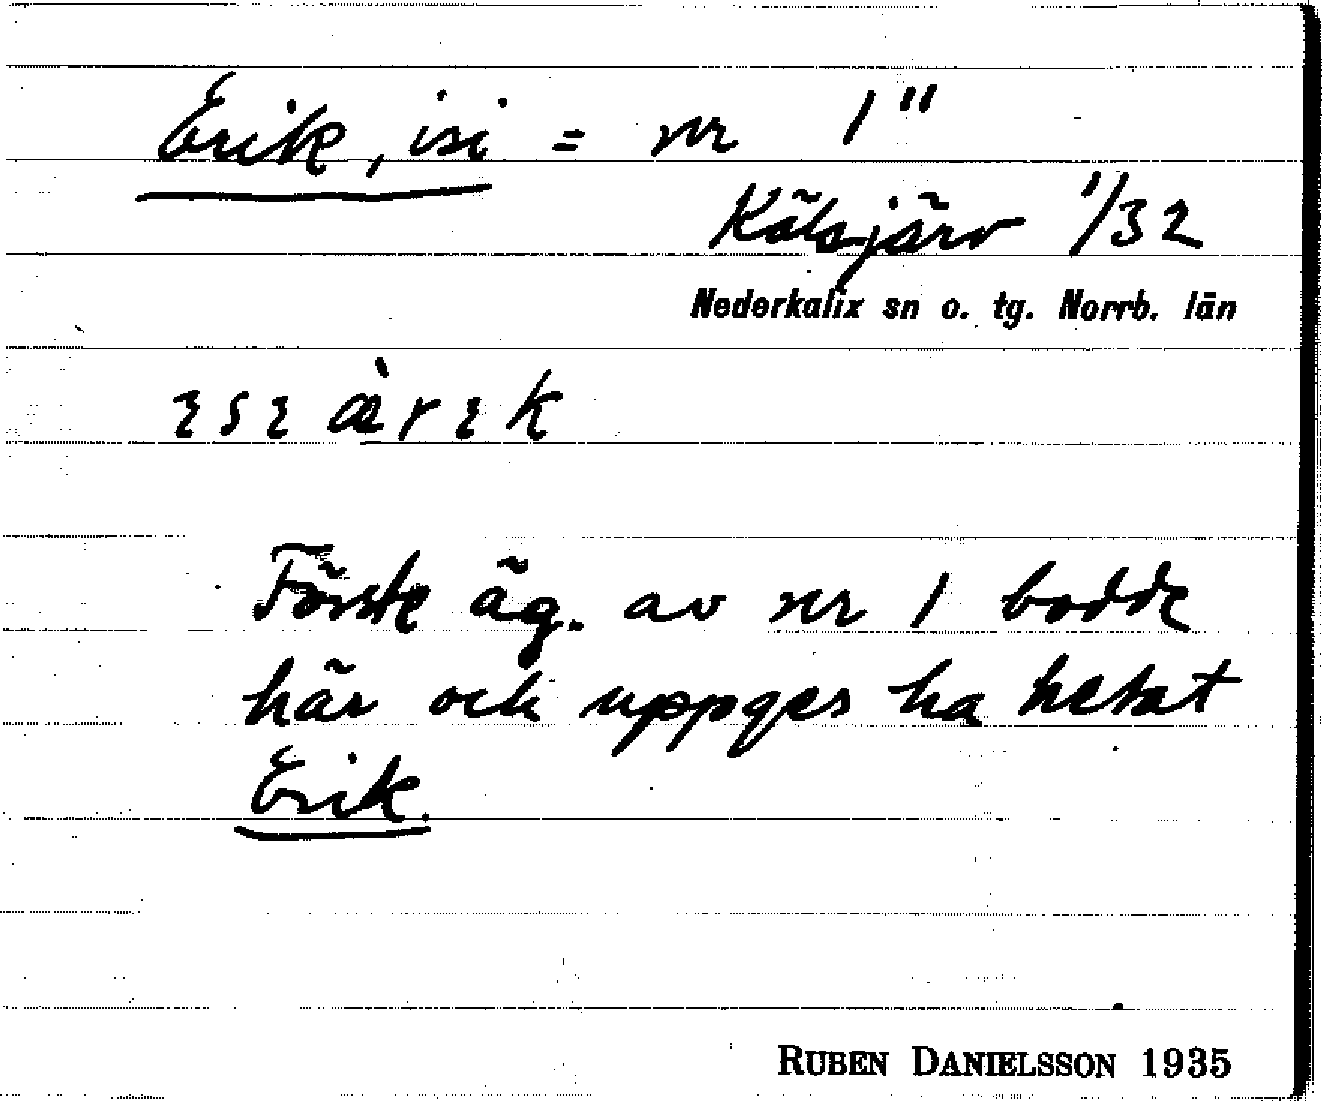 Erik, isi = nr 1"
Kälsjärv 1/32
Nederkalix sn o. tg. Norrb. län
ɿsɿ æ̀rɿk
Förste äg. av nr 1 bodde
här och uppges ha hetat
Erik.
RUBEN DANIELSSON 1935